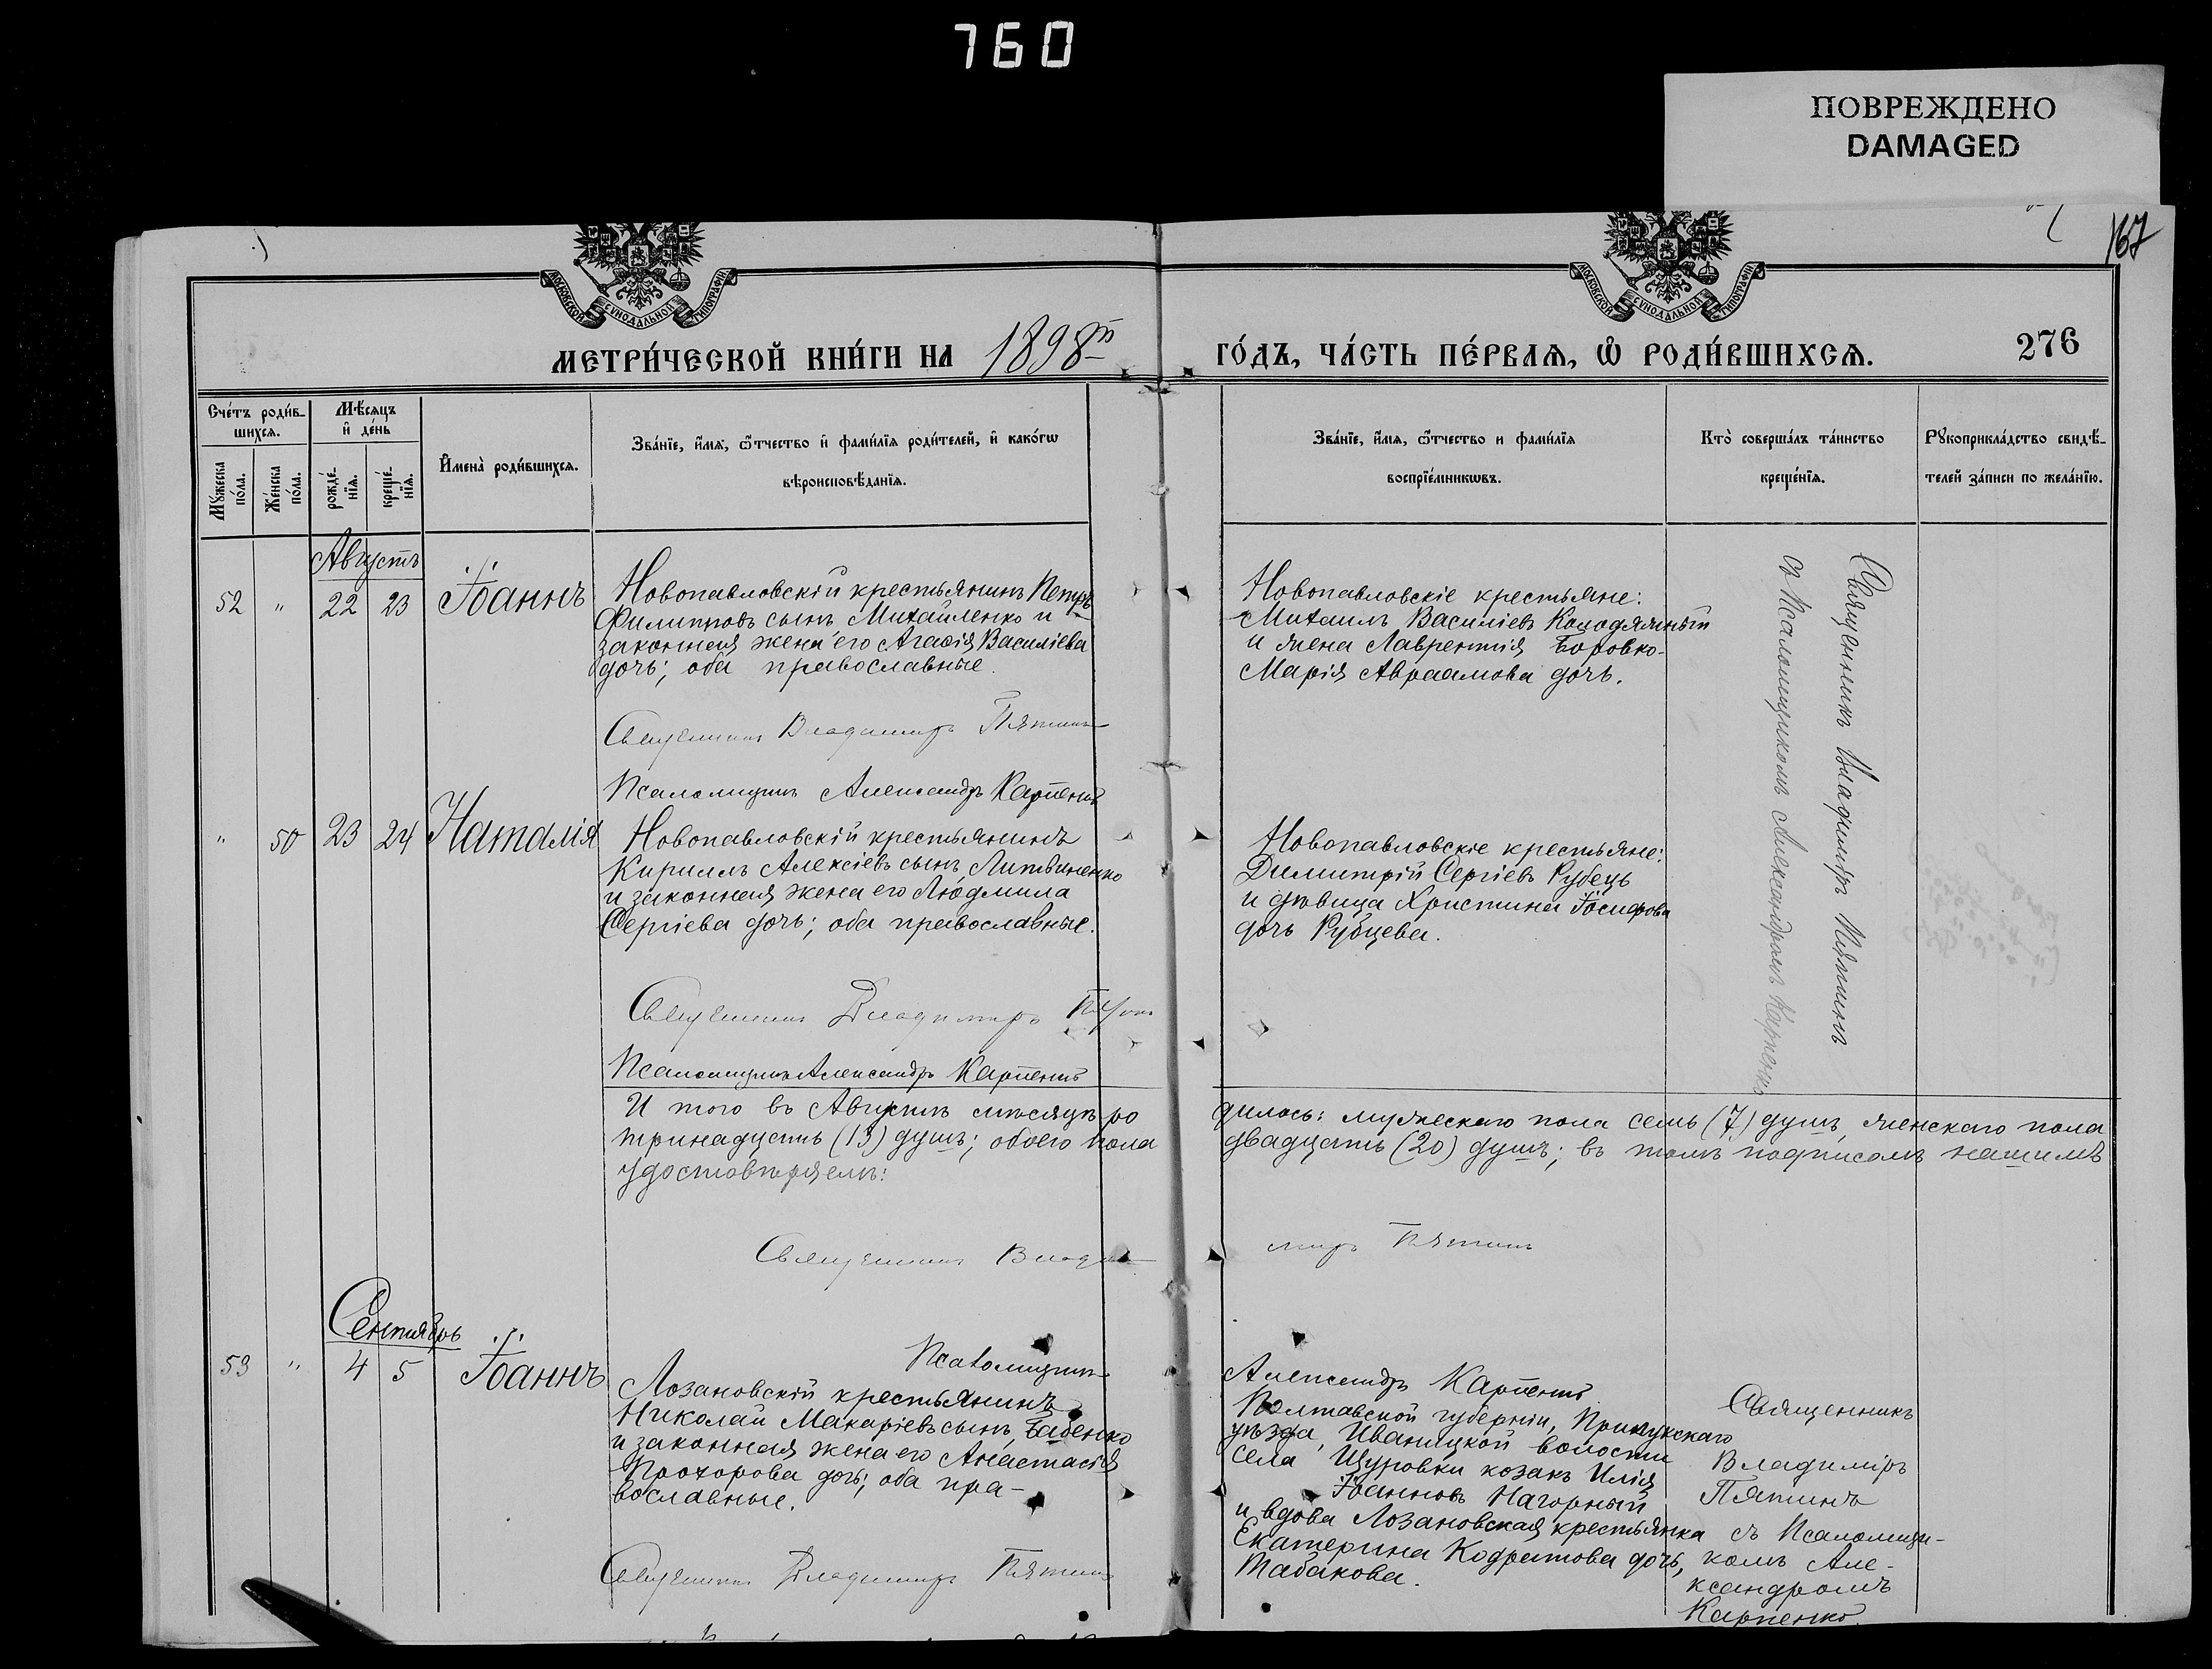 760
ПОВРЕЖДЕНО
DAMAGED
167
МОСКОВСКОЙ СѴНОДАЛЬНОЙ ТИПОГРАФІИ
МОСКОВСКОЙ СѴНОДАЛЬНОЙ ТИПОГРАФІИ
МЕТРИ́ЧЕСКОЙ КНИ́ГИ НА 1898й ГО́ДЪ, ЧА́СТЬ ПЕ́РВАѦ, Ѡ҆ РОДИ́ВШИХСѦ. 276
Сче́тъ роди́в-
шихсѧ.
Мꙋжеска по́ла.
Же́нска по́ла.
Мѣ́сѧцъ
и҆ де́нь
рожде́-
нїѧ.
креще́-
нїѧ.
И҆мена̀ роди́вшихсѧ.
Зва́нїе, и҆́мѧ, ѻ҆́тчество и҆ фами́лїѧ роди́телей, и҆ како́гѡ
вѣроисповѣ́данїѧ.
Зва́нїе, и҆́мѧ, ѻ҆́тчество и фами́лїѧ
воспрїе́мникѡвъ.
Кто̀ соверша́лъ та́инство
креще́нїѧ.
Рꙋкоприкла́дство свидѣ́-
телей за́писи по жела́нїю.
Августъ
52 " 22 23 Іоаннъ
Новопавловскій крестьянинъ Петръ
Филипповъ сынъ Михайленко и
законная жена его Агаѳія Василіева
дочь; оба православные.
Священникъ Владимиръ Пятинъ
Псаломщикъ Александръ Карпенко
Новопавловскіе крестьяне:
Михаилъ Василіевъ Колодяжный
и жена Лаврентія Боровко-
Марія Авраамова дочь.
Священникъ Владиміръ Пятинъ
съ Псаломщикомъ Александромъ Карпенко
" 50 23 24 Наталія
Новопавловскій крестьянинъ
Кириллъ Алексіевъ сынъ Литвиненко
и законная жена его Людмила
Сергіева дочь; оба православные.
Священникъ Владимиръ Пятинъ
Псаломщикъ Александръ Карпенко
Новопавловскіе крестьяне:
Димитрій Сергіевъ Рубецъ
и дѣвица Христина Іосифова
дочь Рубцева.
И того въ Августѣ мѣсяцѣ родилось: мужескаго пола семь (7) душъ, женскаго пола
тринадцать (13) душъ; обоего пола двадцать (20) душъ; въ томъ подписомъ нашимъ
удостовѣряемъ:
Священникъ Владимиръ Пятинъ
Псаломщикъ Александръ Карпенко
Сентябрь
53 " 4 5 Іоаннъ
Лозановскій крестьянинъ
Николай Макаріевъ сынъ Бабенко
и законная жена его Анастасія
Прохорова дочь; оба пра-
вославные.
Священникъ Владимиръ Пятинъ
Полтавской губерніи, Прилукскаго
уѣзда, Иваницкой волости
села Щуровки козакъ Илія
Іоанновъ Нагорный
и вдова Лозановская крестьянка
Екатерина Кодратова дочь,
Табакова.
Священникъ
Владиміръ
Пятинъ
съ Псаломщи-
комъ Але-
ксандромъ
Карпенко.